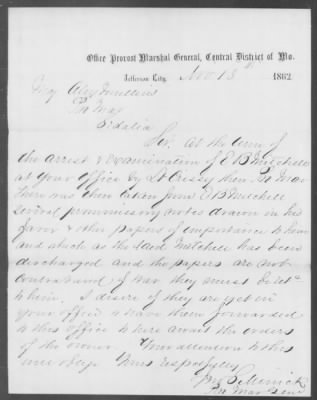 Office Provost Marshal General, Central District of Mo.
Jefferson City, Nov 13th 1862.
Maj Alex Mullins
Pro Mar
Sedalia
Sir. At the time of
the arrest & examination of E B Mitchell
at your Office by Lt Crissy then Pro Mar
there was then taken from E B Mitchell
several promissory notes drawn in his
favor & other papers of importance to him
and which as the said Mitchell has been
discharged and the papers are not
contraband of War they must be
to him. I desire if they are yet in
your office to have them forwarded
to this office to here await the orders
of the owner. Your attention to this
will oblige Yours respectfully
Minick
Pro Mar Genl